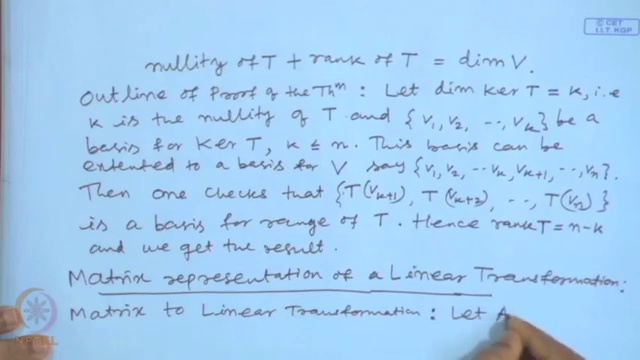 © CET
I.I.T. KGP
nullity of T + rank of T = dim V.
Outline of Proof of the Thm : Let dim Ker T = k, i.e
k is the nullity of T and {v1, v2, .., vk} be a
basis for Ker T, k ≤ n. This basis can be
extented to a basis for V say {v1, v2, .. vk, vk+1, .., vn}.
Then one checks that {T(vk+1), T(vk+2), .., T(vn)}
is a basis for range of T. Hence rank T = n-k
and we get the result.
Matrix representation of a Linear Transformation:
Matrix to Linear Transformation : Let A
NPTEL